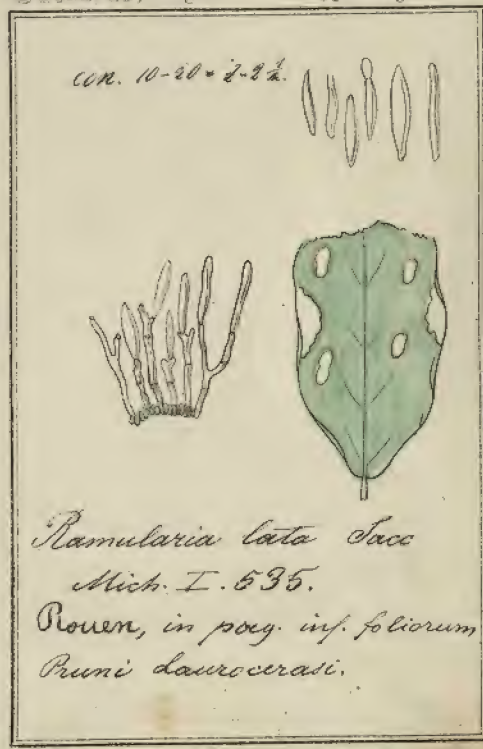 con. 10-20 = 2-2½.
Ramularia lata Sacc
Mich. I. 535.
Rouen, in pag. inf. foliorum
Pruni Laurocerasi.